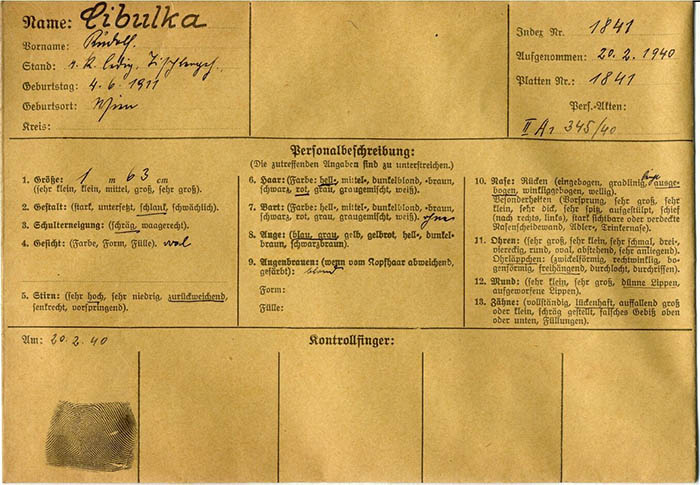 Name: Cibulka
Vorname: Rudolf.
Stand: r. k. ledig, Tischlergeh.
Geburtstag: 4. 6. 1911
Geburtsort: Wien
Kreis:
Index Nr. 1841
Aufgenommen: 20. 2. 1940
Platten Nr.: 1841
Pers.-Akten:
II Ar 345/40
Personalbeschreibung:
(Die zutreffenden Angaben sind zu unterstreichen.)
1. Größe: 1 m 63 cm
(sehr klein, klein, mittel, groß, sehr groß).
2. Gestalt: (stark, untersetzt, schlank, schwächlich).
3. Schulterneigung: (schräg, waagerecht).
4. Gesicht: (Farbe, Form, Fülle). oval
5. Stirn: (sehr hoch, sehr niedrig, zurückweichend,
senkrecht, vorspringend).
6. Haar: (Farbe: hell-, mittel-, dunkelblond, -braun,
schwarz, rot, grau, graugemischt, weiß).
7. Bart: (Farbe: hell-, mittel-, dunkelblond, -braun,
schwarz, rot, grau, graugemischt, weiß). ohne
8. Auge: (blau, grau, gelb, gelbrot, hell-, dunkel-
braun, schwarzbraun).
9. Augenbrauen: (wenn vom Kopfhaar abweichend,
gefärbt): blond
Form:
Fülle:
10. Nase: Rücken (eingebogen, gradlinig, ausge-
bogen, winkliggebogen, wellig).
Besonderheiten (Vorsprung, sehr groß, sehr
klein, sehr dick, sehr spitz, aufgestülpt, schief
(nach rechts, links), stark sichtbare oder verdeckte
Nasenscheidewand, Adler-, Trinkernase).
11. Ohren: (sehr groß, sehr klein, sehr schmal, drei-,
viereckig, rund, oval, abstehend, sehr anliegend).
Ohrläppchen: (zwickelförmig, rechtwinklig, bo-
genförmig, freihängend, durchlocht, durchriffen).
12. Mund: (sehr klein, sehr groß, dünne Lippen,
aufgeworfene Lippen).
13. Zähne: (vollständig, lückenhaft, auffallend groß
oder klein, schräg gestellt, falsches Gebiß oben
oder unten, Füllungen).
Am: 20. 2. 40
Kontrollfinger: